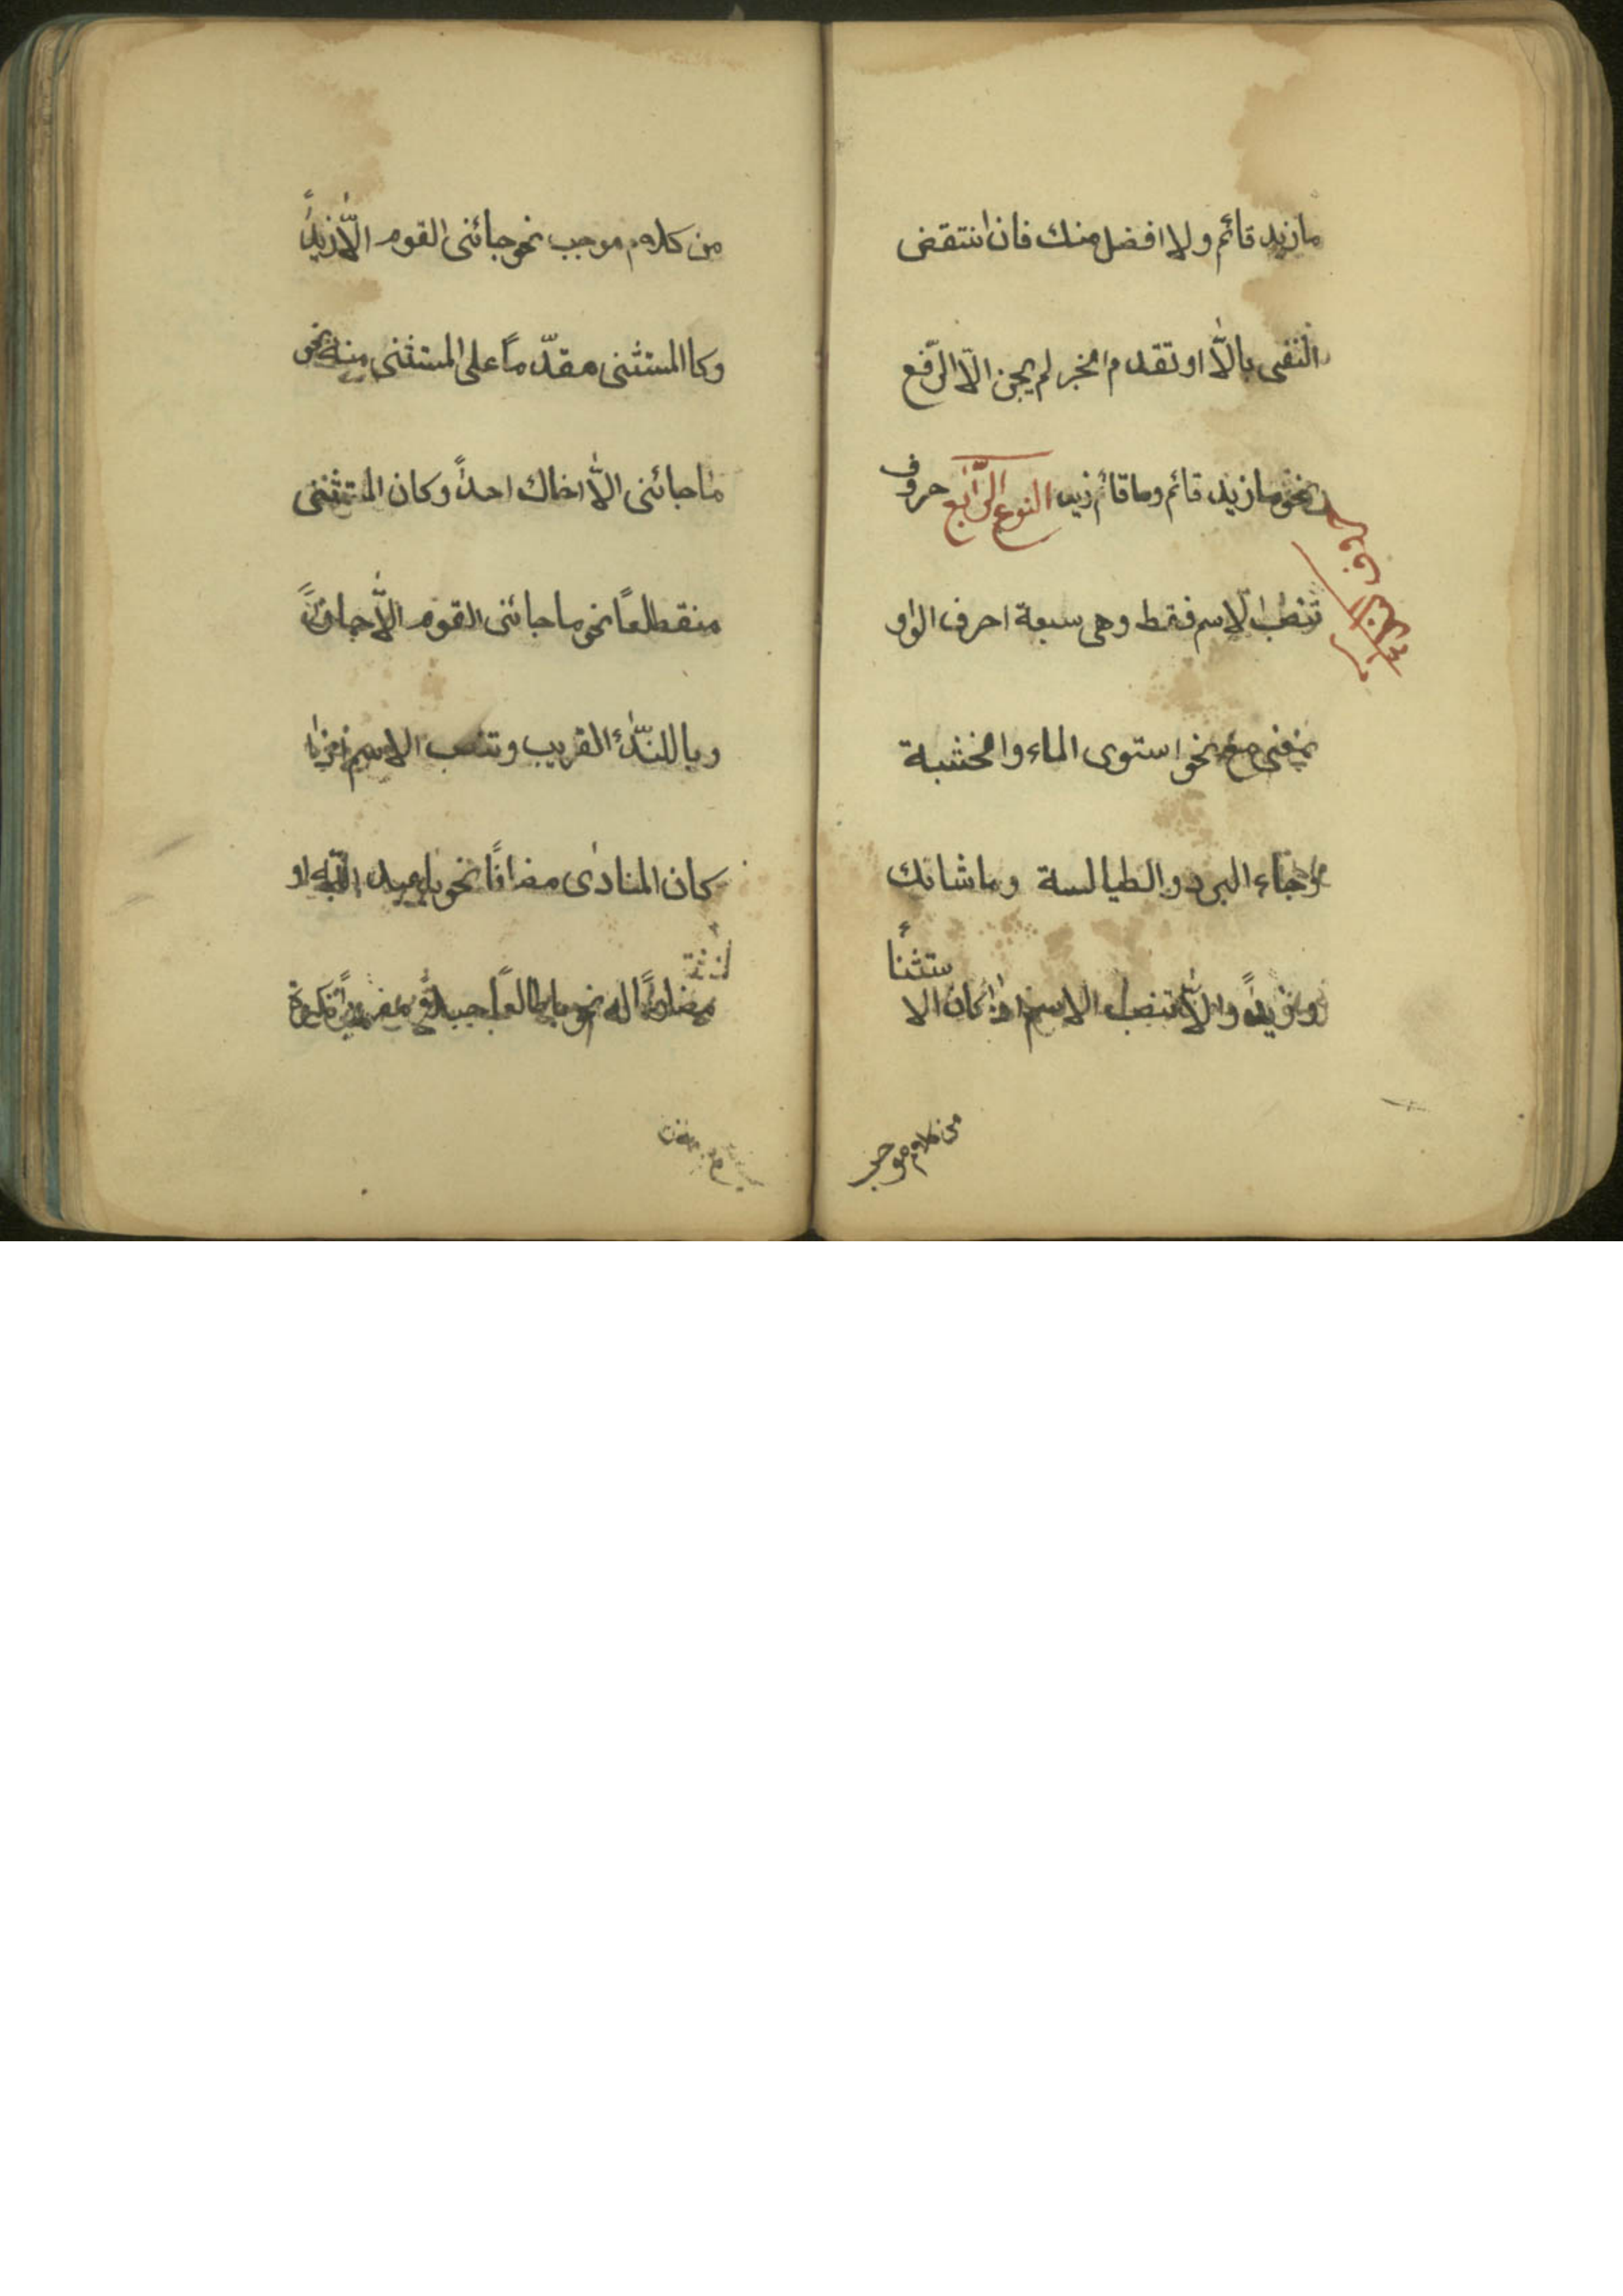 ما زيد قائم ولا افضل منك فان انتقض
النفى بالّا او تقدم الخبر لم يجز الّا الرّفع
نحو ما زيد قائم وما قائم زيد النوع الرّابع حروف
تنصب الاسم فقط وهى سبعة احرف الواو
بمعنى مع نحو استوى الماء والخشبة
وجاء البرد والطيالسة وما شانك
وزيداً والّا تنصب الاسم اذا كان الا
ستثنأ
من كلام موجب
من كلام موجب نحو جائنى القوم الّا زيداً
وكا المستثنى مقدّماً على المستثنى منه نحو
ما جائنى الّا اخاك احداً وكان المستثنى
منقطعاً نحو ما جائنى القوم الّا حماراً
ويا للندّاء القريب وتنصب الاسم اذا
كان المنادى مضافاً نحو يا عبد اللّه او
مضارعاً له نحو يا طالعاً جبلاً او مفرداً نكرة